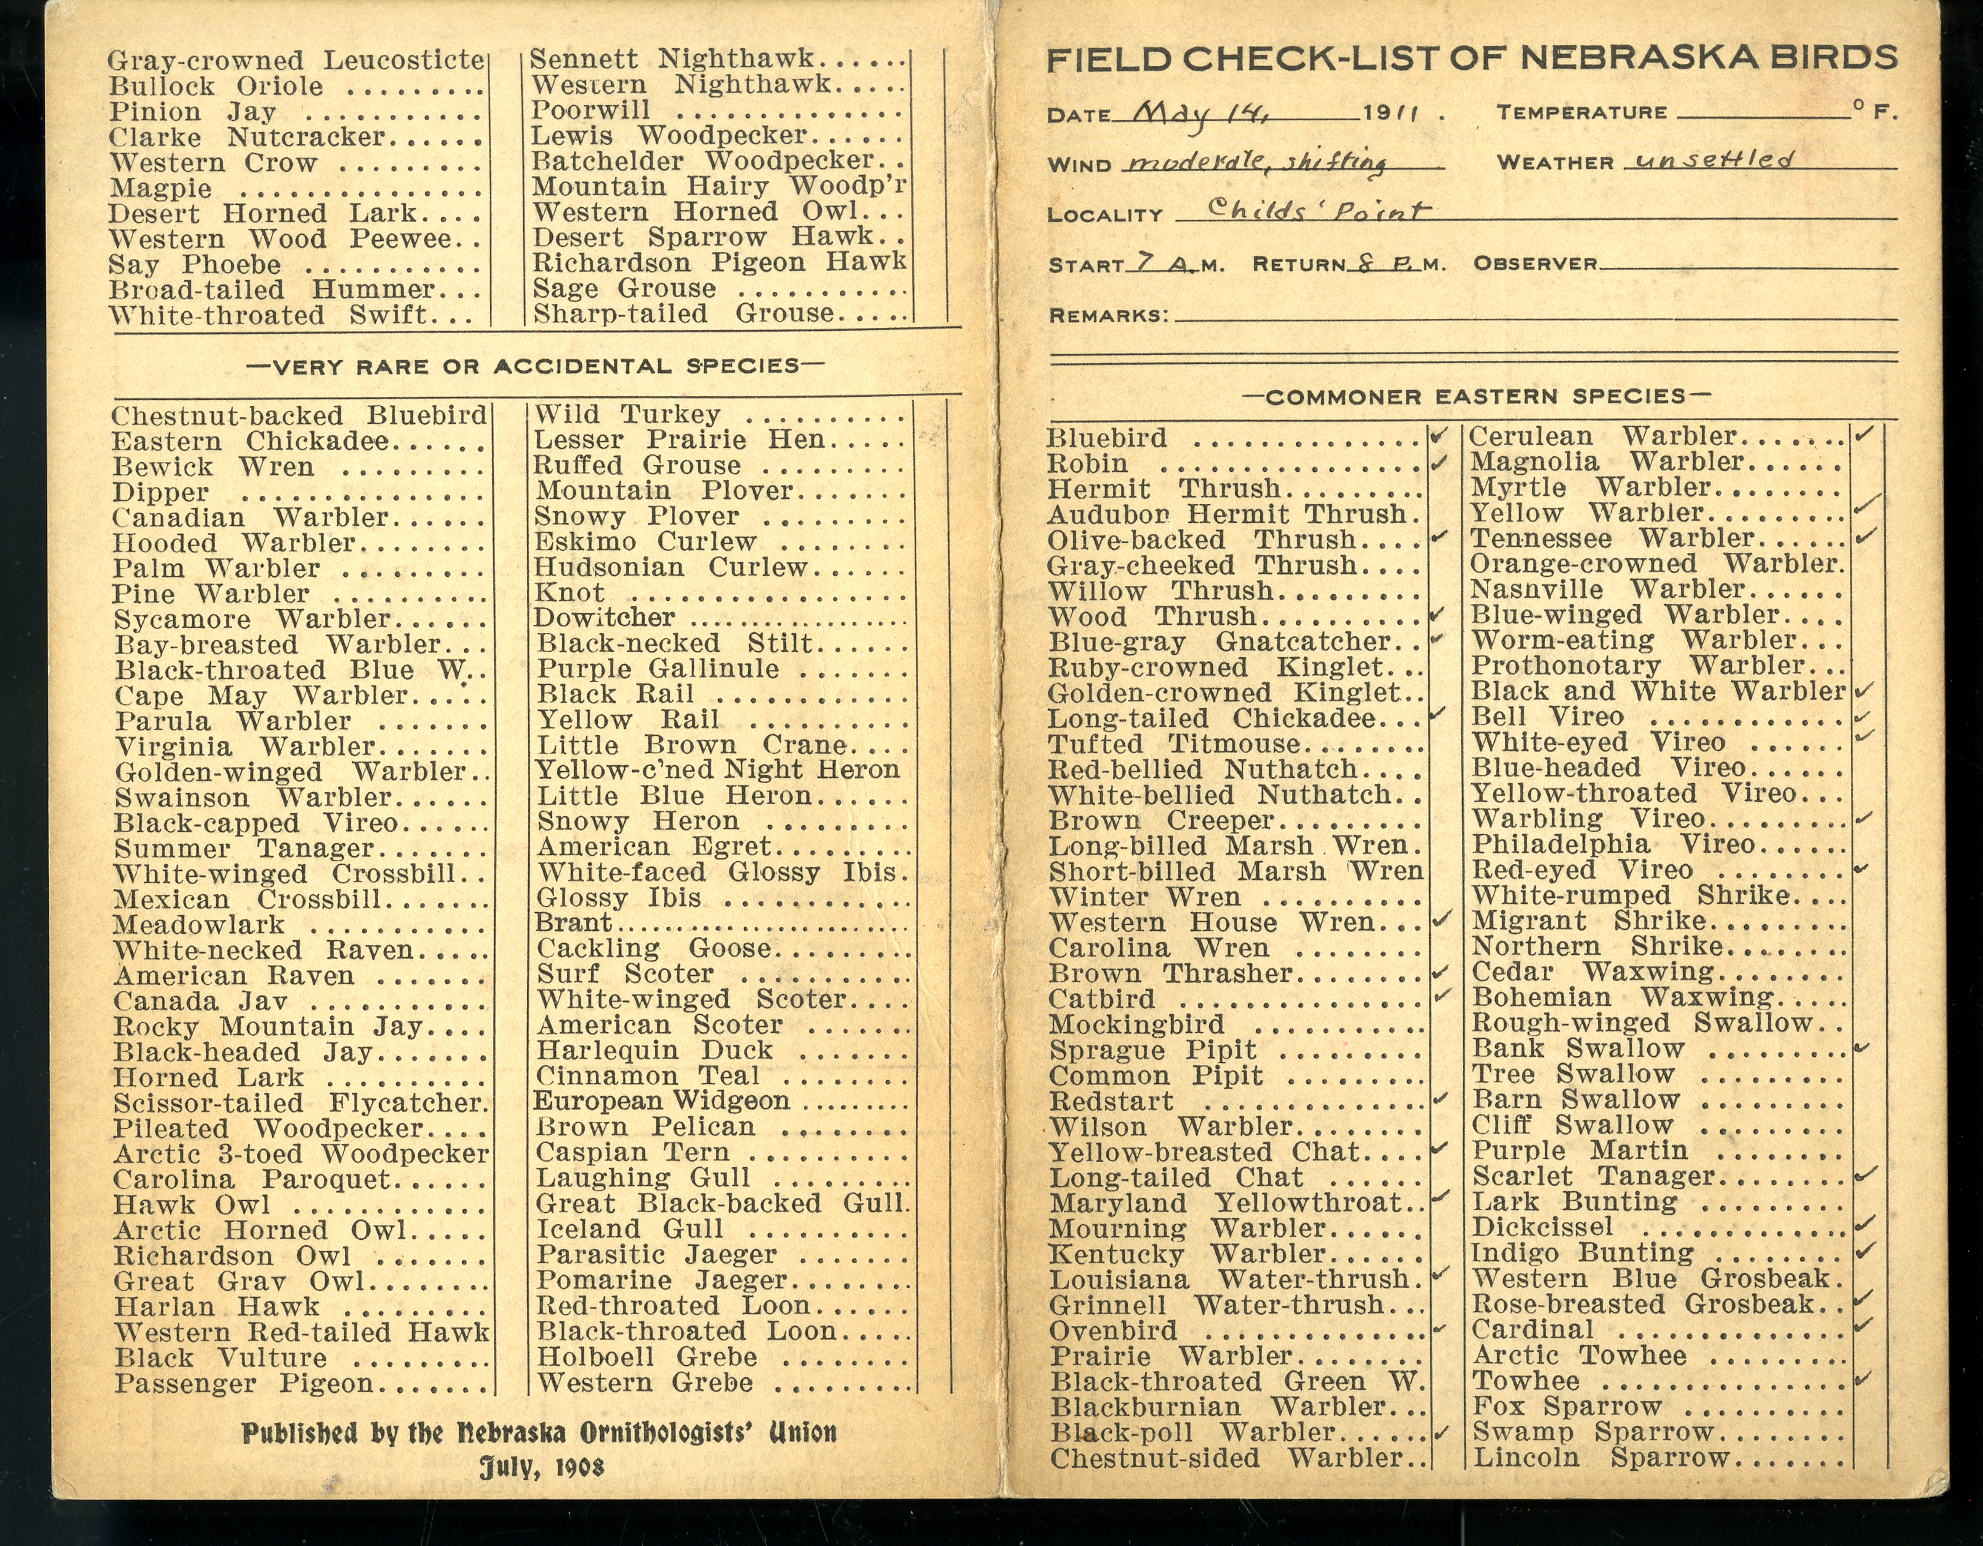 Gray-crowned Leucosticte
Bullock Oriole .........
Pinion Jay ...........
Clarke Nutcracker......
Western Crow .........
Magpie ...............
Desert Horned Lark....
Western Wood Peewee..
Say Phoebe ...........
Broad-tailed Hummer...
White-throated Swift...
Sennett Nighthawk......
Western Nighthawk.....
Poorwill ..............
Lewis Woodpecker......
Batchelder Woodpecker..
Mountain Hairy Woodp'r
Western Horned Owl...
Desert Sparrow Hawk..
Richardson Pigeon Hawk
Sage Grouse ...........
Sharp-tailed Grouse.....
—VERY RARE OR ACCIDENTAL SPECIES—
Chestnut-backed Bluebird
Eastern Chickadee......
Bewick Wren .........
Dipper ...............
Canadian Warbler......
Hooded Warbler........
Palm Warbler .........
Pine Warbler ..........
Sycamore Warbler......
Bay-breasted Warbler...
Black-throated Blue W..
Cape May Warbler.....
Parula Warbler .......
Virginia Warbler.......
Golden-winged Warbler..
Swainson Warbler......
Black-capped Vireo......
Summer Tanager.......
White-winged Crossbill..
Mexican Crossbill.......
Meadowlark ...........
White-necked Raven.....
American Raven .......
Canada Jav ...........
Rocky Mountain Jay....
Black-headed Jay.......
Horned Lark ..........
Scissor-tailed Flycatcher.
Pileated Woodpecker....
Arctic 3-toed Woodpecker
Carolina Paroquet......
Hawk Owl ............
Arctic Horned Owl.....
Richardson Owl .......
Great Grav Owl........
Harlan Hawk .........
Western Red-tailed Hawk
Black Vulture .........
Passenger Pigeon.......
Wild Turkey ..........
Lesser Prairie Hen.....
Ruffed Grouse .........
Mountain Plover.......
Snowy Plover .........
Eskimo Curlew ........
Hudsonian Curlew......
Knot .................
Dowitcher ....................
Black-necked Stilt......
Purple Gallinule .......
Black Rail ............
Yellow Rail ..........
Little Brown Crane....
Yellow-c'ned Night Heron
Little Blue Heron......
Snowy Heron .........
American Egret.........
White-faced Glossy Ibis.
Glossy Ibis ............
Brant...........................
Cackling Goose.........
Surf Scoter ...........
White-winged Scoter....
American Scoter .......
Harlequin Duck .......
Cinnamon Teal ........
European Widgeon .........
Brown Pelican ........
Caspian Tern ..........
Laughing Gull .........
Great Black-backed Gull.
Iceland Gull ..........
Parasitic Jaeger .......
Pomarine Jaeger........
Red-throated Loon......
Black-throated Loon.....
Holboell Grebe ........
Western Grebe .........
Published by the Nebraska Ornithologists' Union
July, 1908
FIELD CHECK-LIST OF NEBRASKA BIRDS
DATE May 14, 1911 . TEMPERATURE ° F.
WIND moderate, shifting WEATHER unsettled
LOCALITY Childs' Point
START 7 A.M. RETURN 8 P.M. OBSERVER
REMARKS:
—COMMONER EASTERN SPECIES—
Bluebird ............... ✓
Robin ................. ✓
Hermit Thrush.........
Audubon Hermit Thrush.
Olive-backed Thrush.... ✓
Gray-cheeked Thrush....
Willow Thrush.........
Wood Thrush........... ✓
Blue-gray Gnatcatcher.. ✓
Ruby-crowned Kinglet...
Golden-crowned Kinglet..
Long-tailed Chickadee... ✓
Tufted Titmouse........
Red-bellied Nuthatch....
White-bellied Nuthatch..
Brown Creeper.........
Long-billed Marsh Wren.
Short-billed Marsh Wren
Winter Wren ..........
Western House Wren... ✓
Carolina Wren ........
Brown Thrasher........ ✓
Catbird ................ ✓
Mockingbird ...........
Sprague Pipit .........
Common Pipit .........
Redstart .............. ✓
Wilson Warbler........
Yellow-breasted Chat.... ✓
Long-tailed Chat ......
Maryland Yellowthroat.. ✓
Mourning Warbler......
Kentucky Warbler......
Louisiana Water-thrush. ✓
Grinnell Water-thrush...
Ovenbird .............. ✓
Prairie Warbler........
Black-throated Green W.
Blackburnian Warbler...
Black-poll Warbler...... ✓
Chestnut-sided Warbler..
Cerulean Warbler....... ✓
Magnolia Warbler......
Myrtle Warbler........
Yellow Warbler......... ✓
Tennessee Warbler...... ✓
Orange-crowned Warbler.
Nasnville Warbler......
Blue-winged Warbler....
Worm-eating Warbler...
Prothonotary Warbler...
Black and White Warbler ✓
Bell Vireo ............ ✓
White-eyed Vireo ...... ✓
Blue-headed Vireo......
Yellow-throated Vireo...
Warbling Vireo......... ✓
Philadelphia Vireo......
Red-eyed Vireo ........ ✓
White-rumped Shrike....
Migrant Shrike.........
Northern Shrike........
Cedar Waxwing........
Bohemian Waxwing.....
Rough-winged Swallow..
Bank Swallow ......... ✓
Tree Swallow .........
Barn Swallow .........
Cliff Swallow .........
Purple Martin ........
Scarlet Tanager........ ✓
Lark Bunting .........
Dickcissel ............. ✓
Indigo Bunting ........ ✓
Western Blue Grosbeak.
Rose-breasted Grosbeak.. ✓
Cardinal .............. ✓
Arctic Towhee .........
Towhee ............... ✓
Fox Sparrow ..........
Swamp Sparrow........
Lincoln Sparrow.......